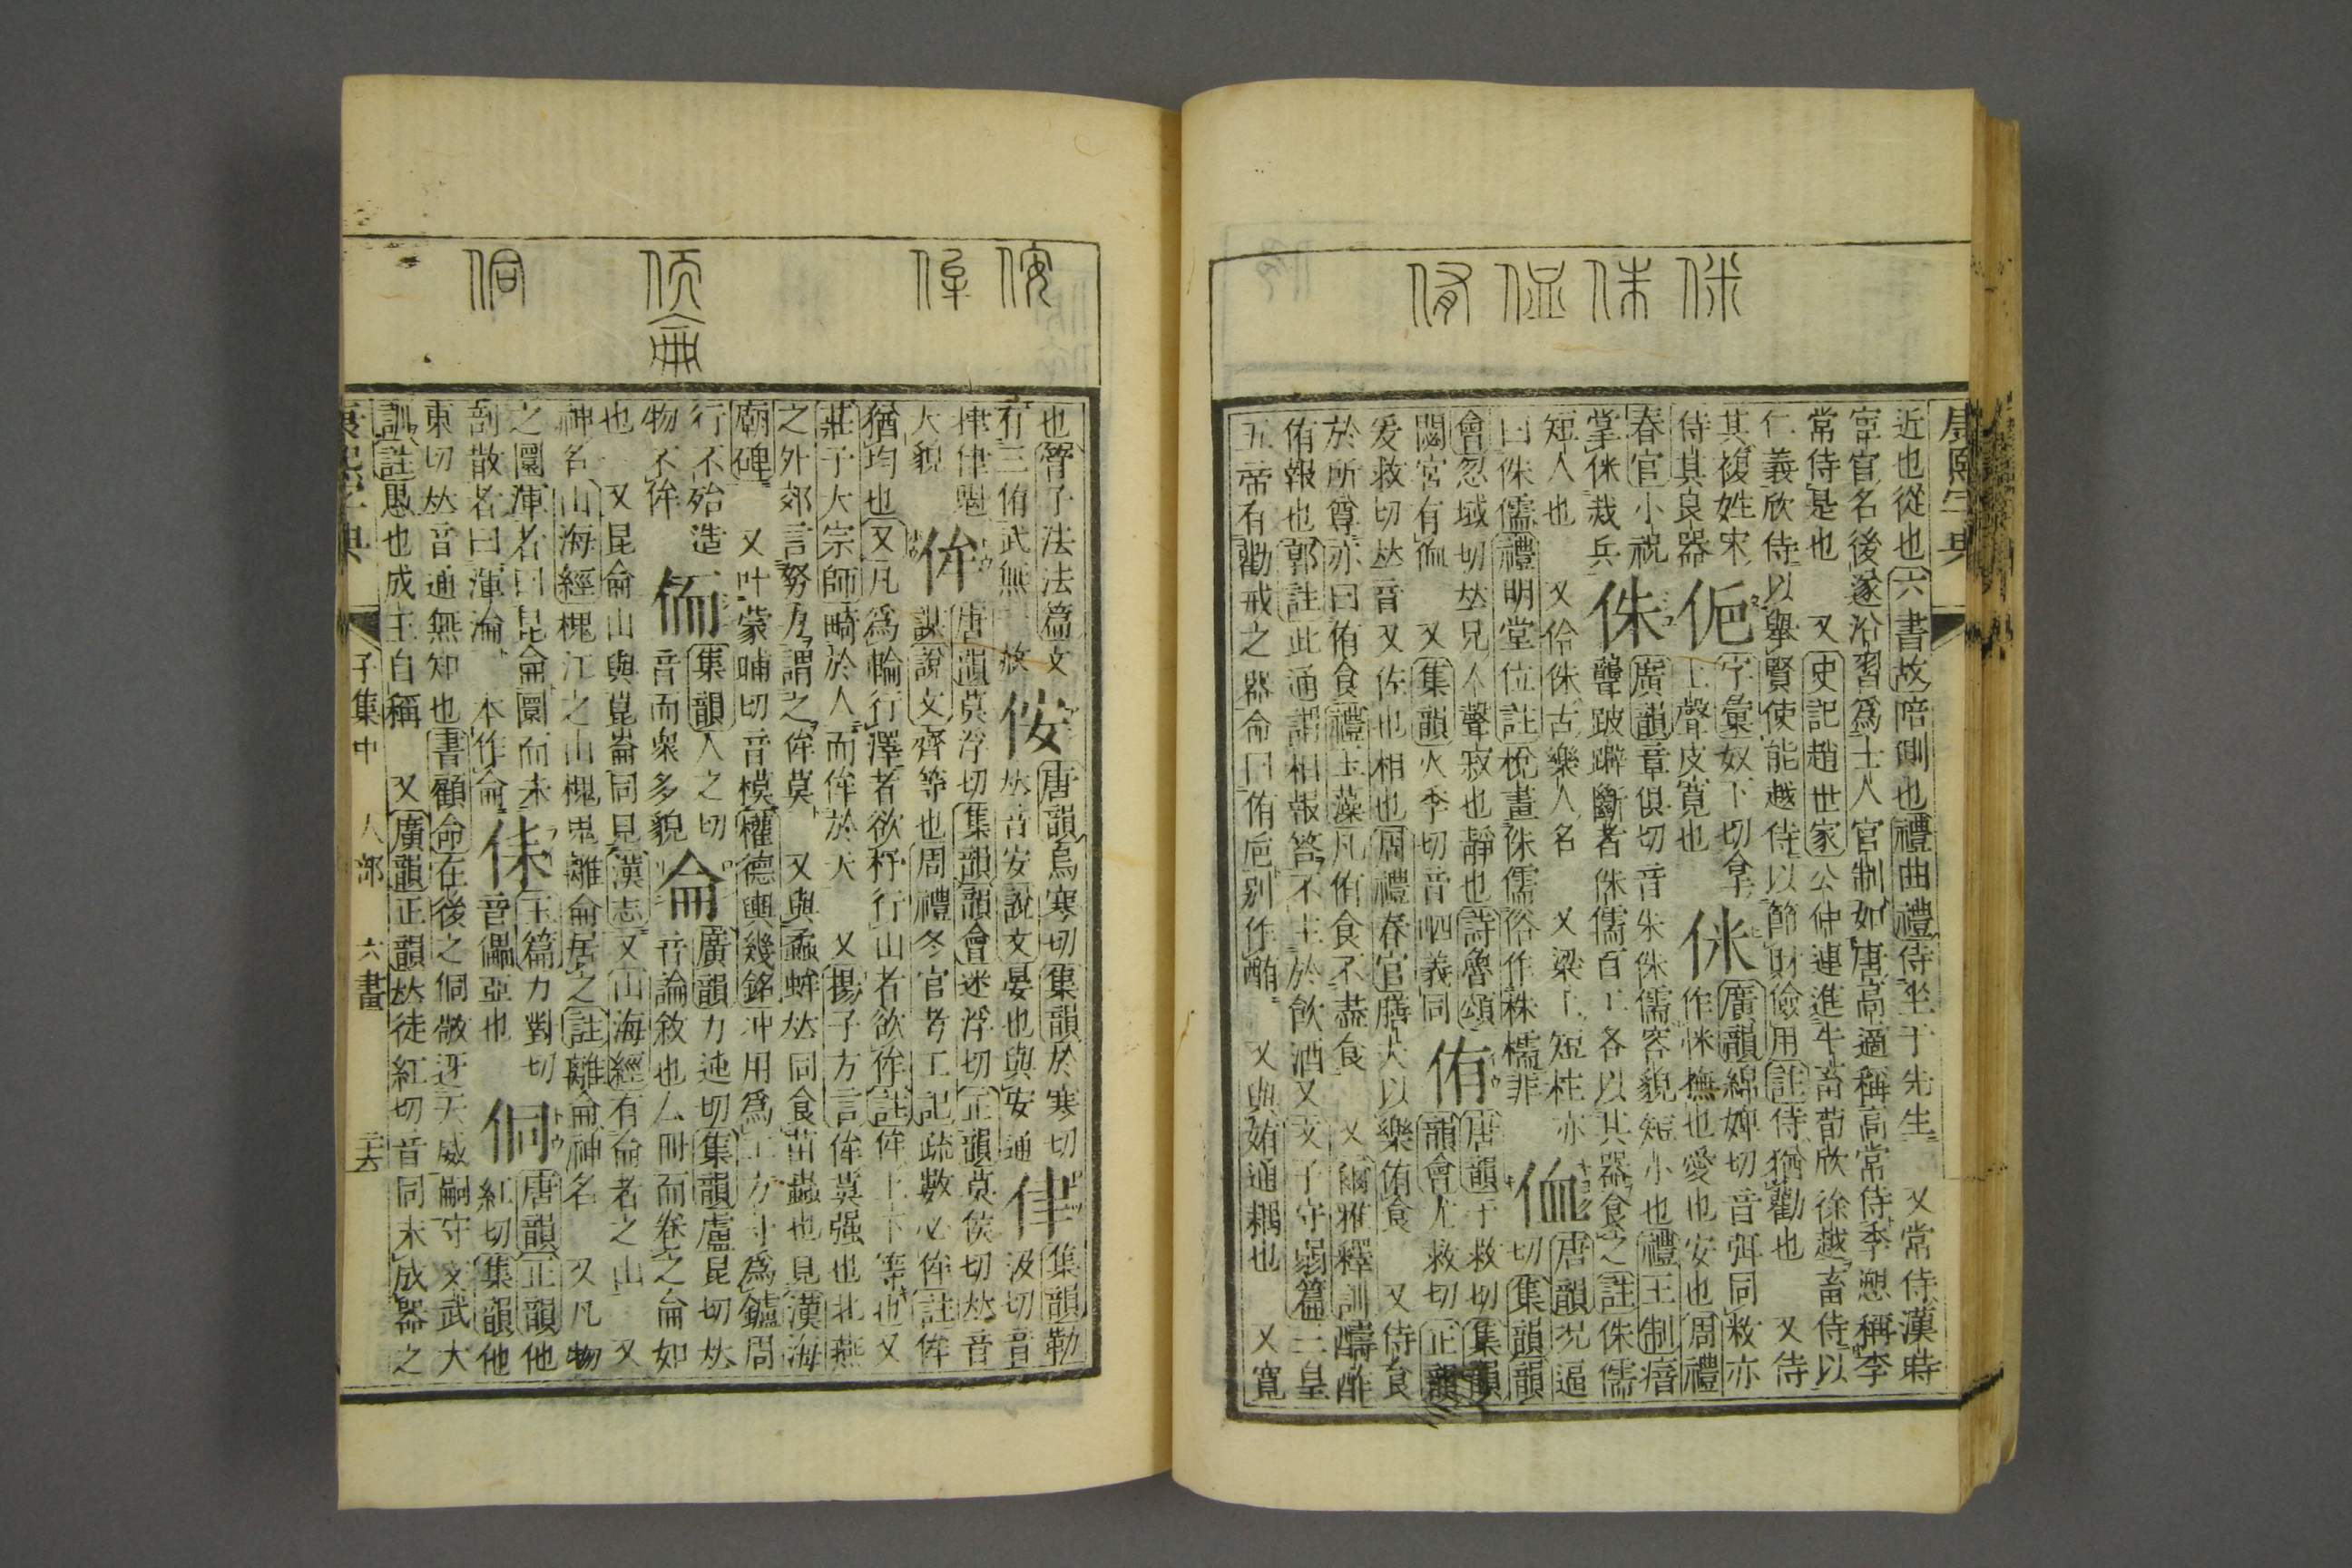 康熙字典
近也從也六書故陪側也禮曲禮侍坐于先生 又常侍漢時
宦官名後遂沿習爲士人官制如唐高適稱高常侍季愬稱李
常侍是也 又史記趙世家公仲連進牛畜荀欣徐越畜侍以
仁義欣侍以舉賢使能越侍以節財儉用註侍猶勸也 又侍
其複姓宋
侍其良器
㑚
字彙奴下切拏
上聲皮寬也
侎
廣韻綿婢切音弭同敉亦
作㤇撫也愛也安也周禮
春官小祝
掌侎烖兵
侏
廣韻章俱切音朱侏儒容貌短小也禮王制瘖
聾跛躃斷者侏儒百工各以其器食之註侏儒
短人也 又伶侏古樂人名 又梁上短柱亦
曰侏儒禮明堂位註梲畫侏儒俗作株檽非
侐
唐韻況逼
切集韻韻
會忽域切𠀤兄入聲寂也靜也詩魯頌
閟宮有侐 又集韻火季切音呬義同
侑
唐韻于救切集韻
韻會尤救切正韻
爰救切𠀤音又佐也相也周禮春官膳夫以樂侑食 又侍食
於所尊亦曰侑食禮玉藻凡侑食不盡食 又爾雅釋訓醻酢
侑報也郭註此通謂相報答不主於飮酒又文子守弱篇三皇
五帝有勸戒之器命曰侑卮别作酭 又與姷通耦也 又寬
也管子法法篇文
有三侑武無一赦
侒
唐韻烏寒切集韻於寒切
𠀤音安說文晏也與安通
侓
集韻勒
汲切音
侓侓魁
大貌
侔
唐韻莫浮切集韻韻會迷浮切正韻莫侯切𠀤音
謀說文齊等也周禮冬官考工記疏數必侔註侔
猶均也又凡爲輪行澤者欲杼行山者欲侔註侔上下等也又
莊子大宗師畸於人而侔於天 又揚子方言侔莫强也北燕
之外郊言努力謂之侔莫 又與蟊蛑𠀤同食苗蟲也見漢海
廟碑 又叶蒙晡切音模權德輿幾銘冲用爲工方寸爲鑪周
行不殆造
物不侔
侕
集韻人之切
音而衆多貌
侖
廣韻力迍切集韻盧昆切𠀤
音論敘也亼冊而卷之侖如
也 又昆侖山與崑崙同見漢志又山海經有侖者之山 又
神名山海經槐江之山槐鬼離侖居之註離侖神名 又凡物
之圜渾者曰昆侖圜而未
剖散者曰渾淪 本作侖
㑍
玉篇力對切
音儡亞也
侗
唐韻正韻他
紅切集韻他
東切𠀤音通無知也書顧命在後之侗敬迓天威嗣守文武大
訓註愚也成王自稱 又廣韻正韻𠀤徒紅切音同未成器之
康熙字典 子集中 人部 六畫 二六